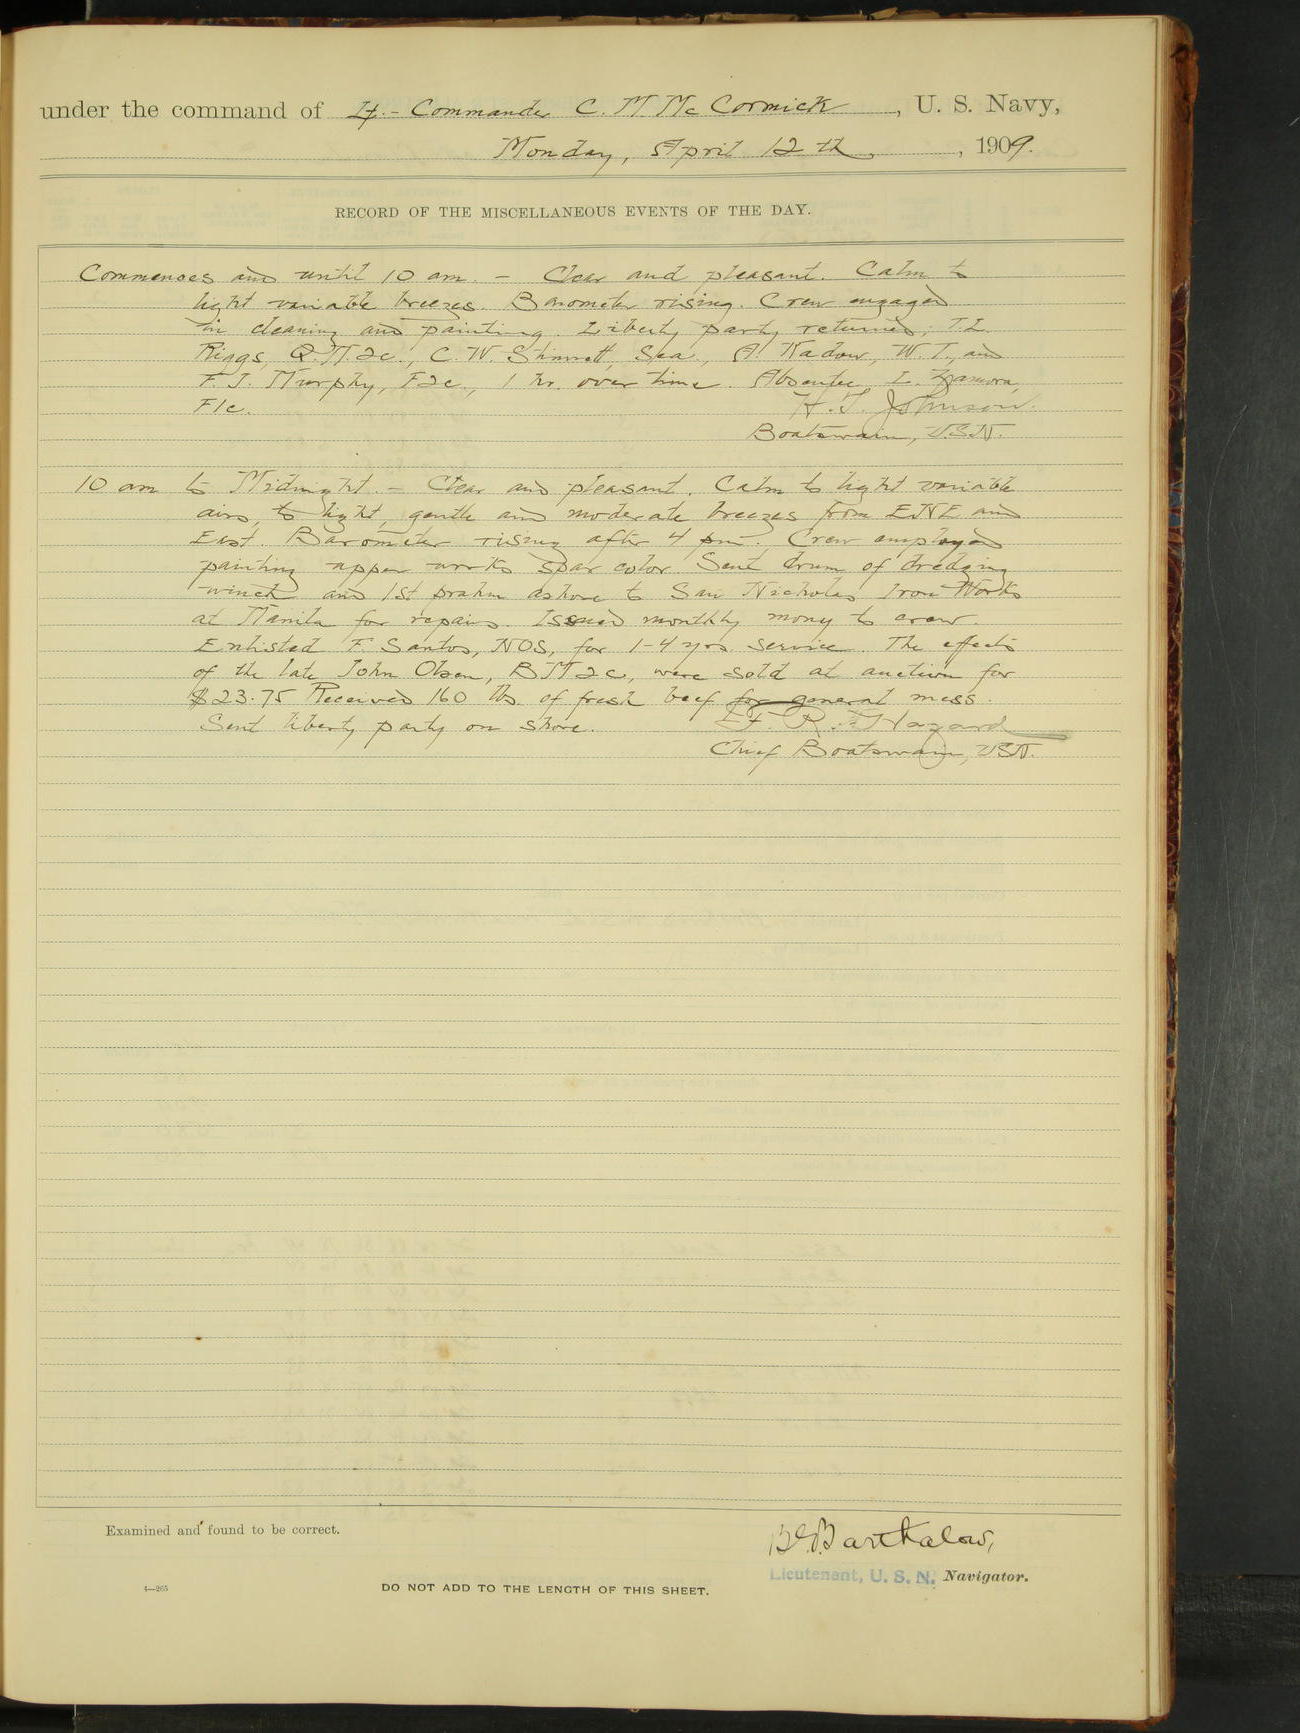 under the command of Lt.- Commander C. M. McCormick, U. S. Navy,
Monday, April 12th, 1909.
RECORD OF THE MISCELLANEOUS EVENTS OF THE DAY.
Commences and until 10 am. - Clear and pleasant. Calm to
light variable breezes. Barometer rising. Crew engaged
in cleaning and painting. Liberty party returned; T.L.
Riggs, Q.M.2c., C.W. Stinnett, Sea., A. Kadow, W.T., and
F.J. Murphy, F2c., 1 hr. over time. Absentee L. Zamora,
F1c. H. T. Johnson.
Boatswain, USN.
10 am to Midnight. - Clear and pleasant. Calm to light variable
airs, to light, gentle and moderate breezes from ENE and
East. Barometer rising after 4 pm. Crew employed
painting upper works spar color. Sent drum of dredging
winch and 1st prahm ashore to San Nicholas Iron Works
at Manila for repairs. Issued monthly money to crew.
Enlisted F. Santos, NOS, for 1-4 yrs service. The effects
of the late John Olsen, BM2c, were sold at auction for
$23.75 Received 160 lbs. of fresh beef for general mess.
Sent liberty party on shore. F. R. Hazard
Chief Boatswain, USN.
Examined and found to be correct.
Barthalow,
Lieutenant, U. S. N. Navigator.
4—265
DO NOT ADD TO THE LENGTH OF THIS SHEET.